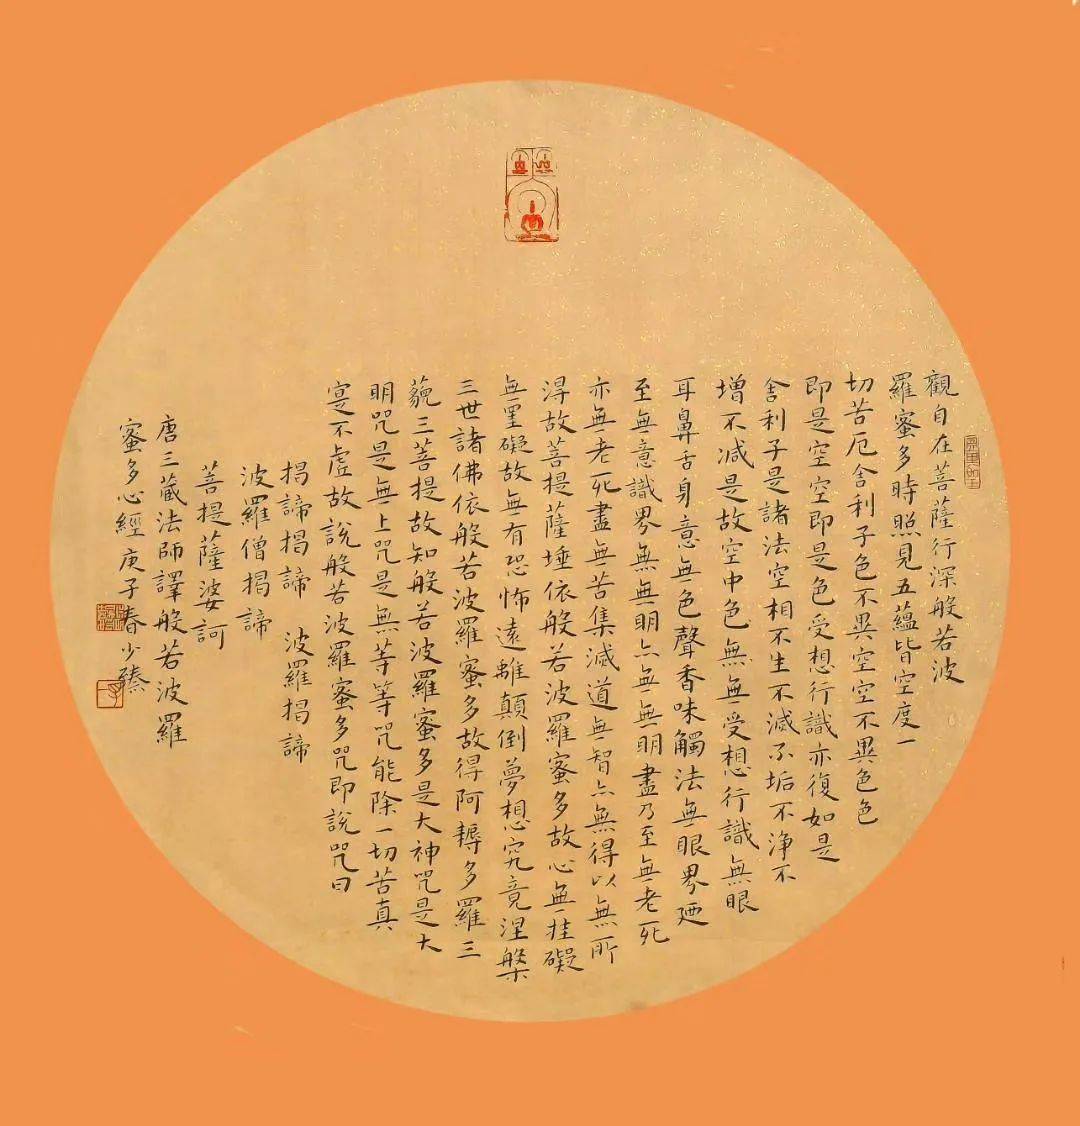 觀自在菩薩行深般若波
羅蜜多時照見五蘊皆空度一
切苦厄舍利子色不異空空不異色色
即是空空即是色受想行識亦復如是
舍利子是諸法空相不生不滅不垢不淨不
增不減是故空中色無無受想行識無眼
耳鼻舌身意無色聲香味觸法無眼界廼
至無意識界無無明亦無無明盡乃至無老死
亦無老死盡無苦集滅道無智亦無得以無所
得故菩提薩埵依般若波羅蜜多故心無挂礙
無罣礙故無有恐怖遠離顛倒夢想究竟涅槃
三世諸佛依般若波羅蜜多故得阿耨多羅三
藐三菩提故知般若波羅蜜多是大神咒是大
明咒是無上咒是無等等咒能除一切苦真
寔不虛故說般若波羅蜜多咒即說咒曰
揭諦揭諦 波羅揭諦
波羅僧揭諦
菩提薩婆訶
唐三藏法師譯般若波羅
蜜多心經庚子春少臻